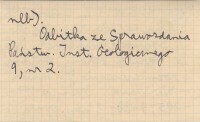 nlb).
Odbitka ze Sprawozdania
Państw. Inst. Geologicznego
9, nr 2.